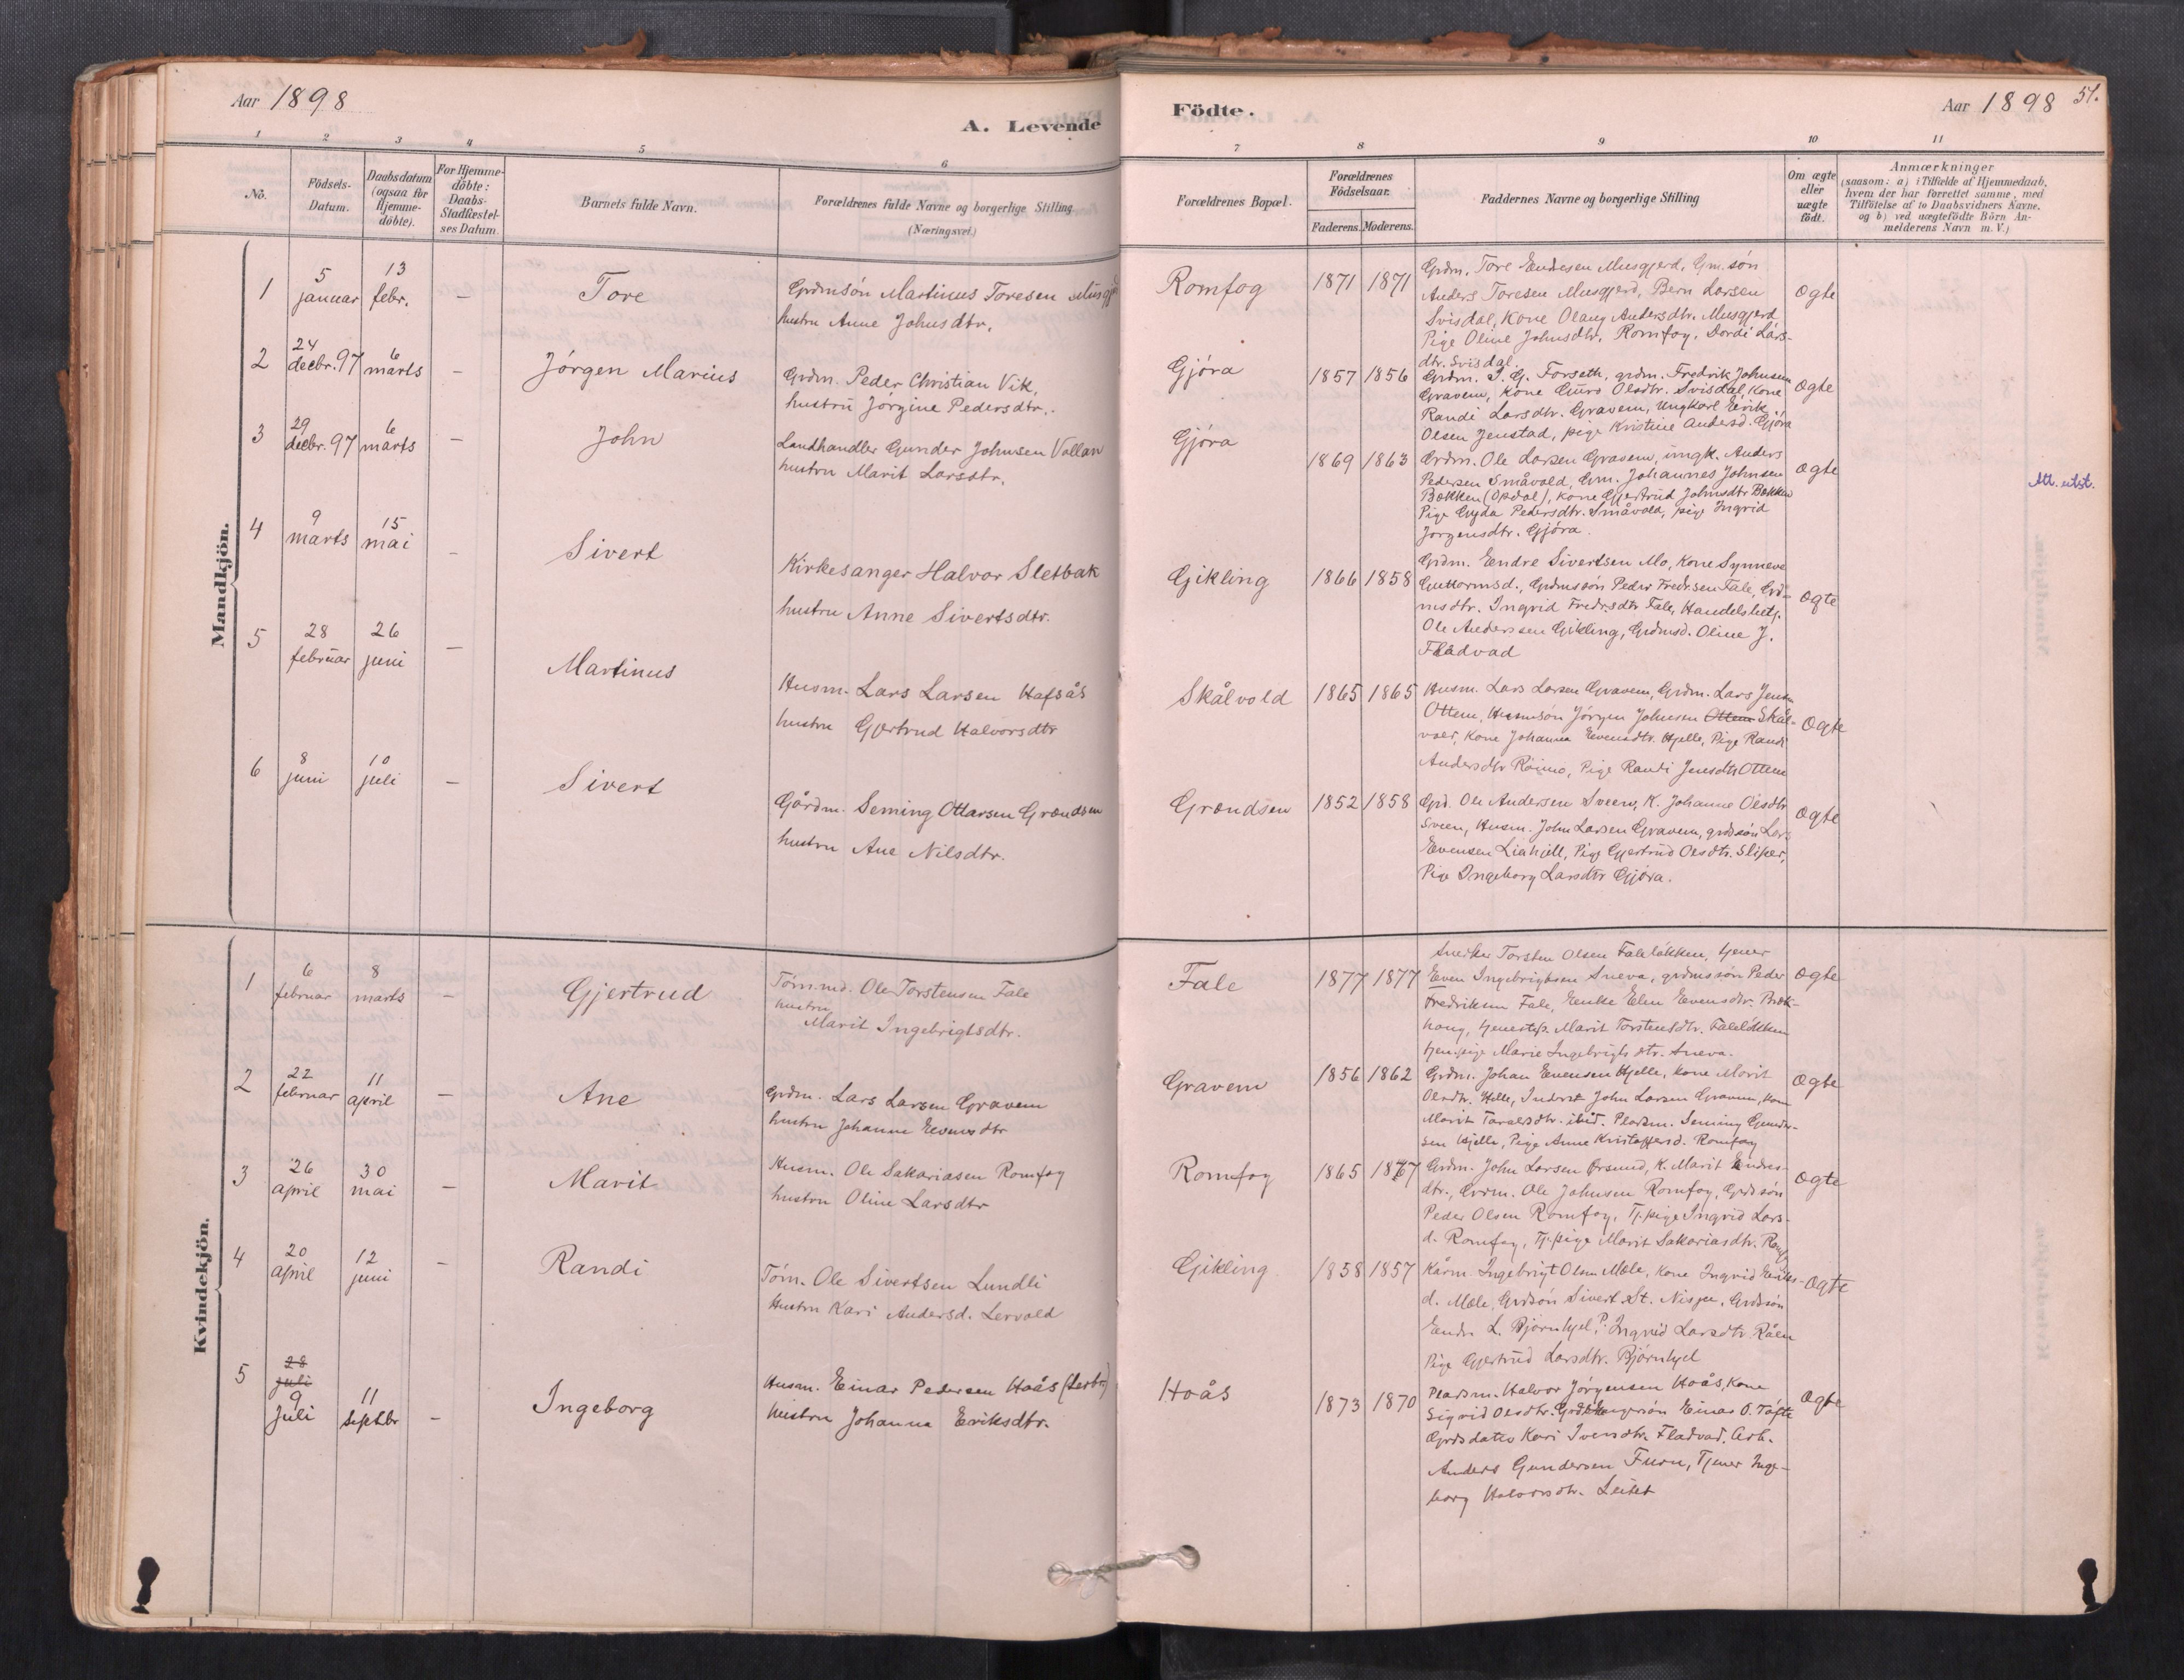 Aar 1898
A. Levende
Födte.
Aar 1898
51.
1 2 3 4 5 6 7 8 9 10 11
No.
Födsels-
Datum.
Daabsdatum
(ogsaa for
Hjemme-
döbte).
For Hjemme-
döbte:
Daabs-
Stadfæstel-
ses Datum.
Barnets fulde Navn.
Forældrenes fulde Navne og borgerlige Stilling
(Næringsvei.)
Forældrenes Bopæl.
Forældrenes
Födselsaar.
Faderens. Moderens.
Faddernes Navne og borgerlige Stilling
Om ægte
eller
uægte
födt.
Anmærkninger
(saasom: a) i Tilfælde af Hjemmedaab,
hvem der har forrettet samme, med
Tilföielse af to Daabsvidners Navne,
og b) ved uægtefödte Börn An-
melderens Navn m.V.)
Mandkjön.
1
5
januar
13
febr.
—
Tore
Grdmsön Martinus Toresen Musgjerd
hustru Anne Johnsdtr.
Romfog
1871 1871
Grdm. Tore Endresen Musgjerd, Gm.sön
Anders Toresen Musgjerd, Bern Larsen
Svisdal, Kone Olaug Andersdtr. Musgjerd
Pige Oline Johnsdtr. Romfog, Dordi Lars-
dtr. Svisdal.
Ægte
2
24
decbr. 97
6
marts
—
Jörgen Marius
Grdm. Peder Christian Vik,
hustru Jörgine Pedersdtr.
Gjöra
1857 1856
Grdm. I. G. Forseth, grdm. Fredrik Johnsen
Gravem, Kone Guro Olsdtr. Svisdal, Kone
Randi Larsdtr. Gravem, Ungkarl Eirik
Olsen Jenstad, pige Kristine Andersd. Gjöra
Ægte
3
29
decbr. 97
6
marts
—
John
Landhandler Gunder Johnsen Vollan
hustru Marit Larsdtr.
Gjöra
1869 1863
Grdm. Ole Larsen Gravem, ungk. Anders
Pedersen Småvold, Grm. Johannes Johnsen
Bækken (Opdal), Kone Gjertrud Johnsdtr Bækken
Pige Gyda Pedersdtr. Småvold, pige Ingrid
Jörgensdtr. Gjöra.
Ægte
Att. utst.
4
9
marts
15
mai
—
Sivert
Kirkesanger Halvor Sletbak
hustru Anne Sivertsdtr.
Gikling
1866 1858
Grdm. Endre Sivertsen Mo, Kone Synneve
Guttormsd., Grdmssön Peder Fredrsen Fale, Grd-
msdtr. Ingrid Fredrsdtr Fale, Handelsbetj.
Ole Anderssen Gikling, Grdmsd. Oline J.
Flådvad
Ægte
5
28
februar
26
juni
—
Martinus
Husm. Lars Larsen Hafsås
hustru Gjertrud Halvorsdtr
Skålvold
1865 1865
Husm. Lars Larsen Gravem, Grdm. Lars Jensen
Ottem, Husmsön Jörgen Johnsen Ottem Skål-
vold, Kone Johanna Evensdtr. Hjelle, Pige Randi
Andersdtr Röimo, Pige Randi Jensdtr Ottem
Ægte
6
8
juni
10
juli
—
Sivert
Gårdm. Seming Ottarsen Grøndsen
hustru Ane Nilsdtr.
Grøndsen
1852 1858
Grd. Ole Andersen Sveen, K. Johanne Olsdtr
Sveen, Husm. John Larsen Gravem, grdssön Lars
Evensen Liahjell, Pige Gjertrud Olsdtr. Sliper,
Pige Ingeborg Larsdtr Gjöra.
Ægte
Kvindekjön.
1
6
februar
8
marts
—
Gjertrud
Töm.md. Ole Torstensen Fale
hustru
Marit Ingebrigtsdtr.
Fale
1877 1877
Snedker Torsten Olsen Falelökken, tjener
Even Ingebrigtsen Sneva, grdmssön Peder
Fredriksen Fale, Enke Elen Evensdtr. Bæk-
haug, tjenestep. Marit Torstensdtr. Falelökken
tjen.pige Marie Ingebrigtsdtr. Sneva.
Ægte
2
22
februar
11
april
—
Ane
Grdm. Lars Larsen Gravem
hustru Johanne Evensdtr
Gravem
1856 1862
Grdm. Johan Evensen Hjelle, Kone Marit
Olsdtr. Hjelle, Inderst John Larsen Gravem, Kone
Marit Toralsdtr. ibid. Pladsm. Seming Gunder-
sen Hjelle, Pige Anne Kristoffersd. Romfog
Ægte
3
26
april
30
mai
—
Marit
Husm. Ole Sakariasen Romfog
hustru Oline Larsdtr
Romfog
1865 1867
Grdm. John Larsen Ørsund, K. Marit Endres-
dtr., Grdm. Ole Johnsen Romfog, Grdssön
Peder Olsen Romfog, Tj.pige Ingrid Lars-
d. Romfog, Tj.pige Marit Sakariasdtr. Romf.
Ægte
4
20
april
12
juni
—
Randi
Töm. Ole Sivertsen Lundli
Hustru Kari Andersd. Lervold
Gikling
1858 1857
Kårm. Ingebrigt Olsen Mæle, Kone Ingrid Eriks-
d. Mæle, Grdsön Sivert St. Nisja, Grdssön
Endr. L. Bjørnhjel, P. Ingrid Larsdtr. Råen
Pige Gjertrud Larsdtr. Bjørnhjel
Ægte
5
28
juli
9
Juli
11
Septbr
—
Ingeborg
Husm. Einar Pedersen Hoås
hustru Johanna Eriksdtr.
Hoås
1873 1870
Pladsm. Halvor Jörgensen Hoås, Kone
Sigrid Olsdtr. Einar O. Tofte
Grdsdatter Kari Iversdtr. Fladvad, Arb.
Anders Gundersen Furu, Tjener Inge-
borg Halvorsdtr. Leitet
Ægte